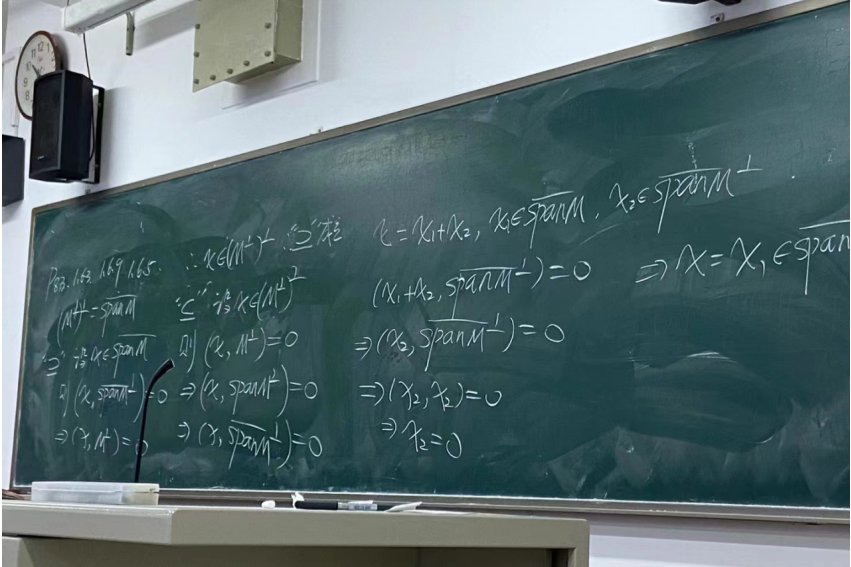 P83. 1.6.3. 1.6.9 1.6.5.
(M^⊥)^⊥ = \overline{span M}
"⊃" 设 x ∈ \overline{span M}
则 (x, \overline{span M}^⊥) = 0
⇒ (x, M^⊥) = 0
∴ x ∈ (M^⊥)^⊥ "⊃"
"⊂" 设 x ∈ (M^⊥)^⊥
则 (x, M^⊥) = 0
⇒ (x, span M^⊥) = 0
⇒ (x, \overline{span M}^⊥) = 0
x = x₁ + x₂, x₁ ∈ \overline{span M}, x₂ ∈ \overline{span M}^⊥.
(x₁ + x₂, \overline{span M}^⊥) = 0
⇒ (x₂, \overline{span M}^⊥) = 0
⇒ (x₂, x₂) = 0
⇒ x₂ = 0
⇒ x = x₁ ∈ \overline{span